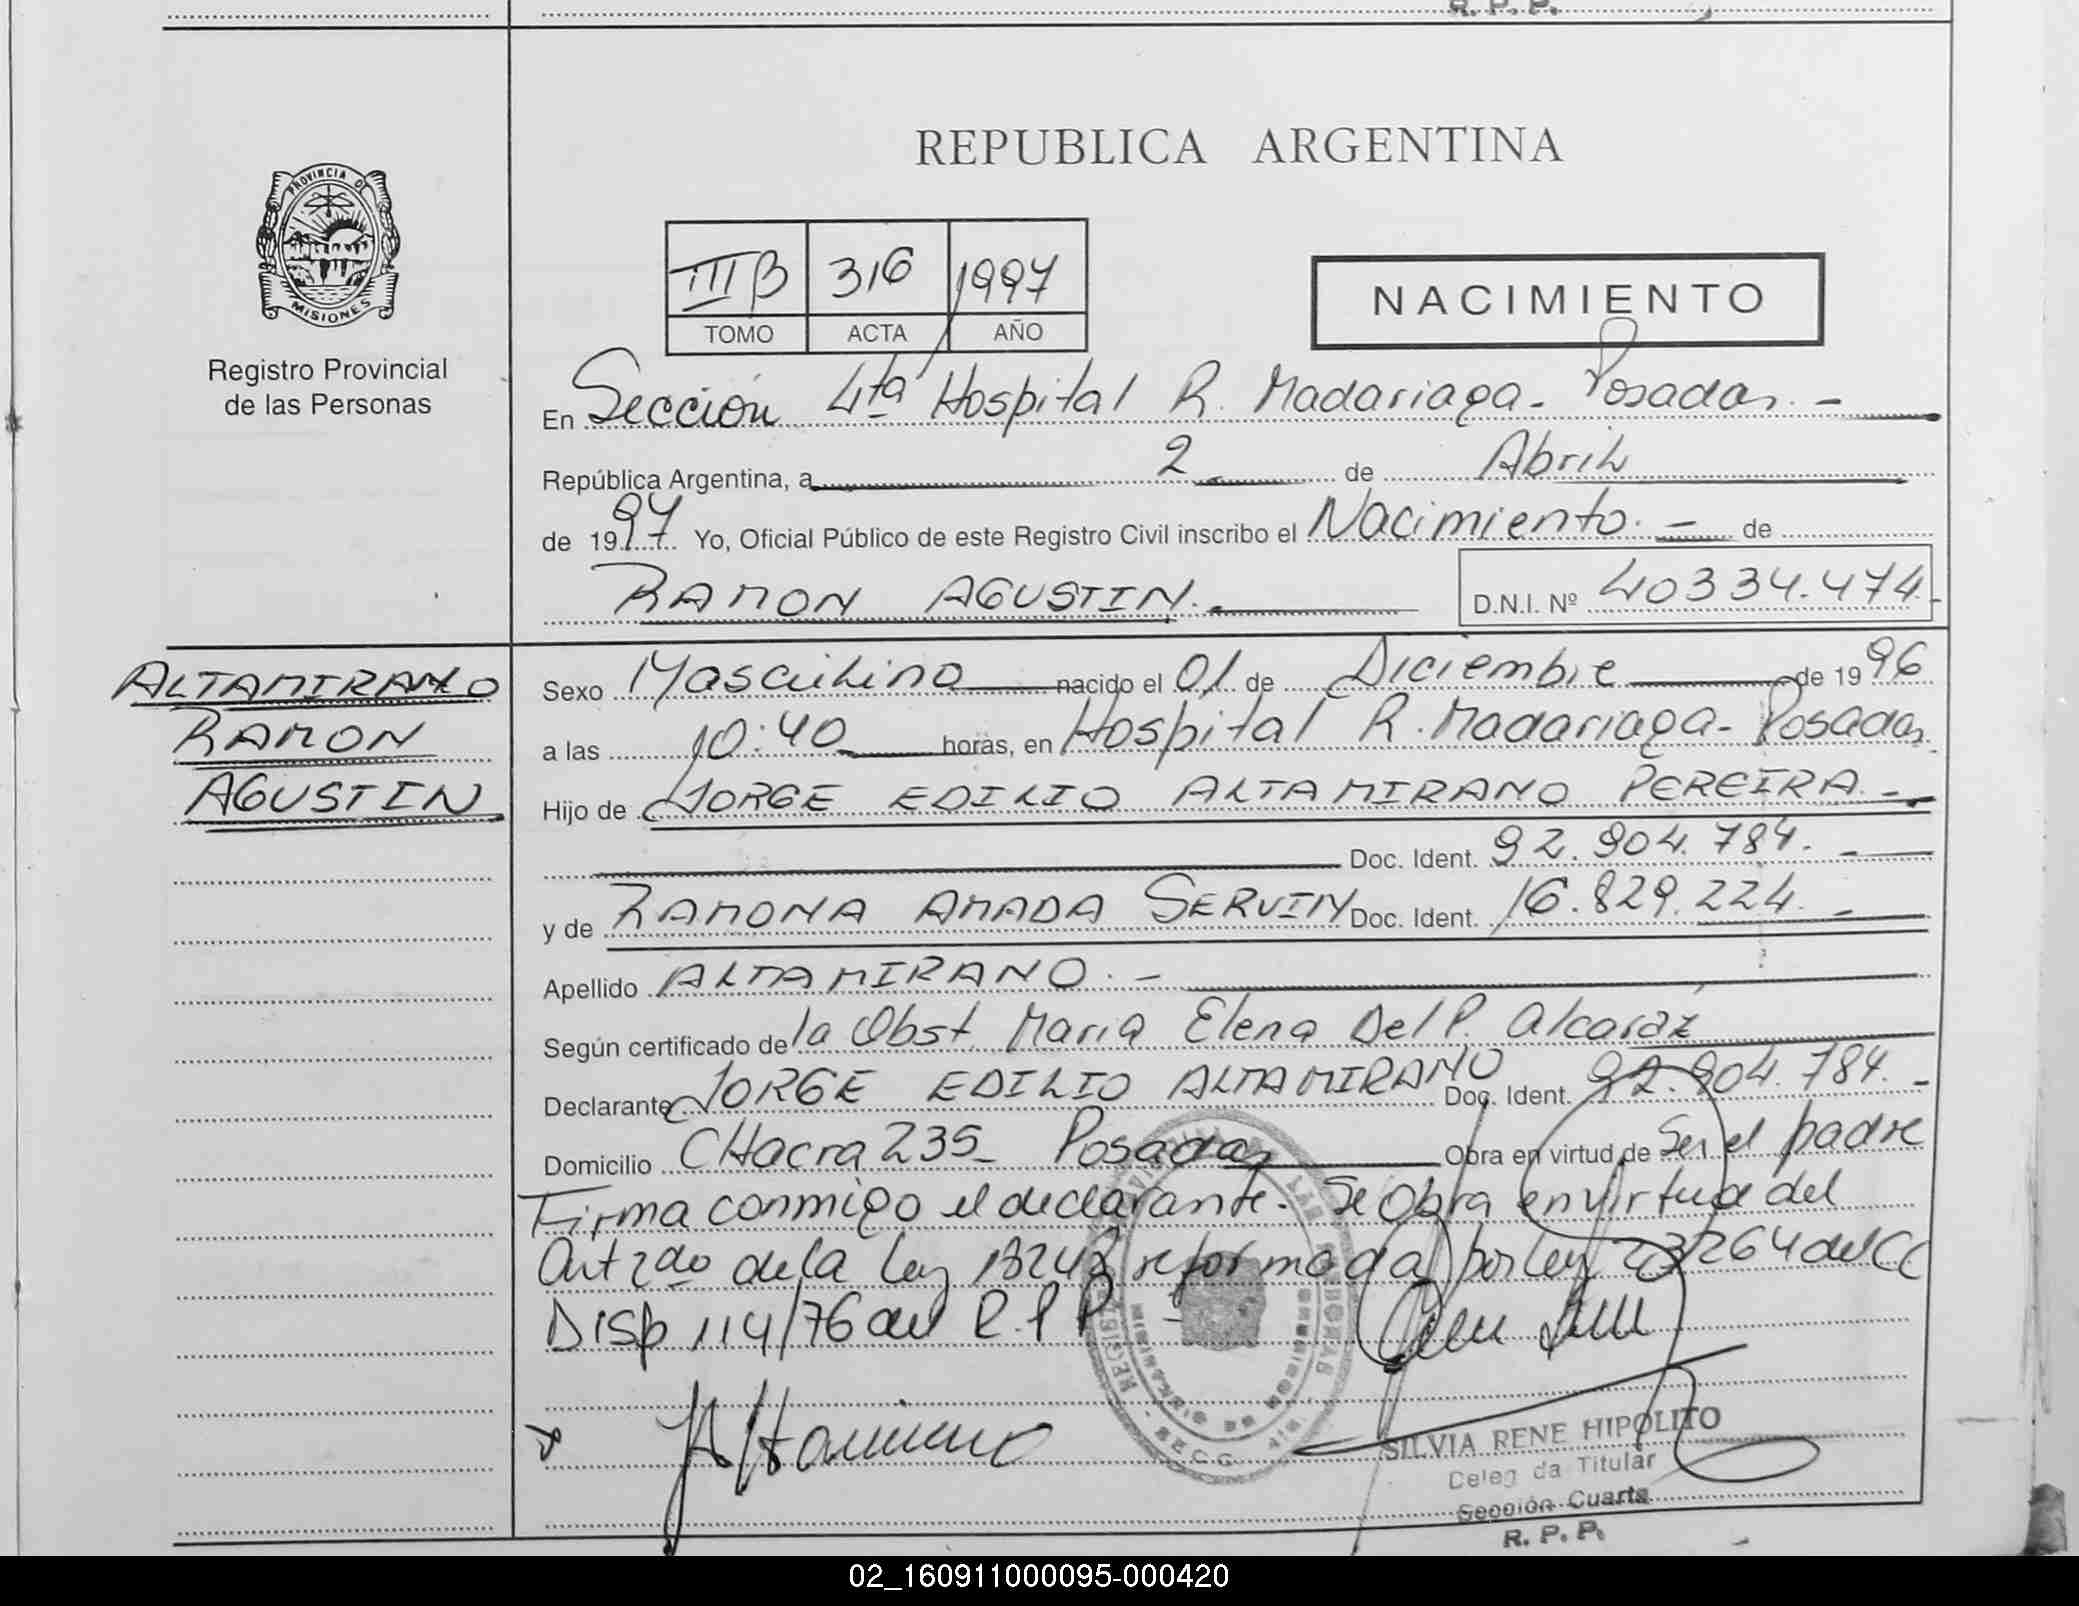 R. P. P.
REPUBLICA ARGENTINA
PROVINCIA DE
MISIONES
Registro Provincial
de las Personas
III B 316 1997
TOMO ACTA AÑO
NACIMIENTO
En Sección 4ta Hospital R. Madariaga - Posadas. -
República Argentina, a 2 de Abril
de 1997 Yo, Oficial Público de este Registro Civil inscribo el Nacimiento. - de
RAMON AGUSTIN. D.N.I. Nº 40334.474.
ALTAMIRANO
RAMON
AGUSTIN
Sexo Masculino nacido el 01 de Diciembre de 1996
a las 10:40 horas, en Hospital R. Madariaga - Posadas
Hijo de JORGE EDILIO ALTAMIRANO PEREIRA. -
Doc. Ident. 92.904.784. -
y de RAMONA AMADA SERVIN Doc. Ident. 16.829.224. -
Apellido ALTAMIRANO. -
Según certificado de la Obst. Maria Elena Del P. Alcaraz
Declarante JORGE EDILIO ALTAMIRANO Doc. Ident. 92.904.784. -
Domicilio CHacra 235 - Posadas Obra en virtud de Ser el padre
Firma conmigo el declarante. Se Obra en virtud del
Art 2do de la Ley 18248 reformada por ley 23264 del CC
Disp 114/76 del R.P.P -
JAltamirano
SILVIA RENE HIPOLITO
Deleg da Titular
Sección Cuarta
R. P. P.
02_160911000095-000420